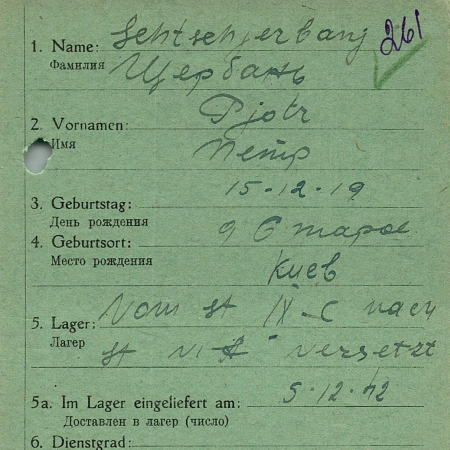 261
1. Name: Schtscherbanj
Фамилия Щербань
2. Vornamen: Pjotr
Имя Петр
15-12-19
3. Geburtstag:
День рождения
4. Geburtsort: д Старое
Место рождения Киев
5. Lager: Vom st IX-C nach
Лагер st VI versetzt
5a. Im Lager eingeliefert am: 5-12-42
Доставлен в лагер (число)
6. Dienstgrad: